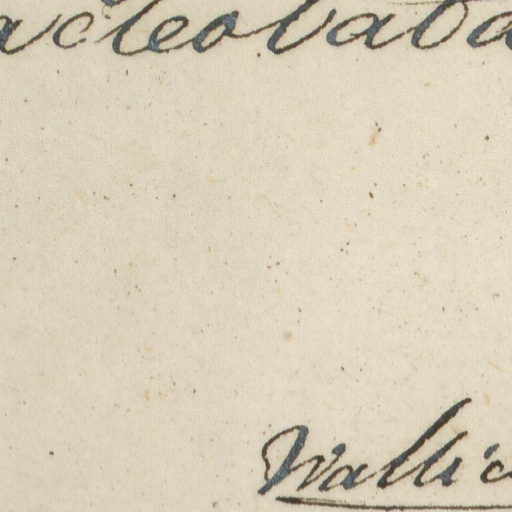 acleobaba
Wallic